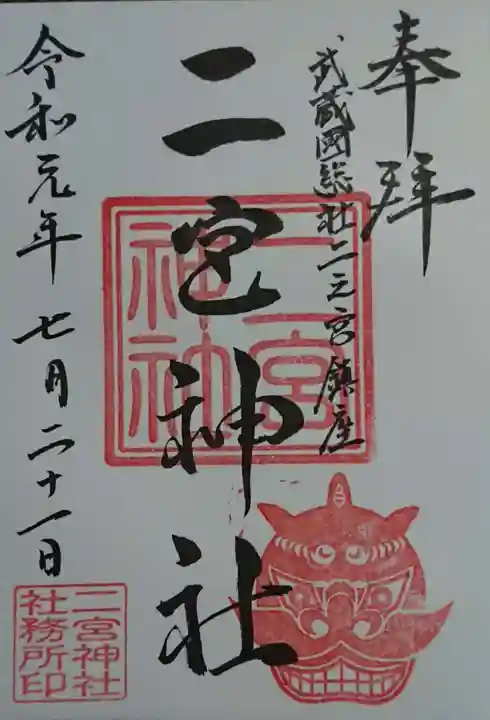 奉拝
武蔵國総社二之宮鎮座
二宮神社
二宮
神社
令和元年七月二十一日
二宮神社
社務所印